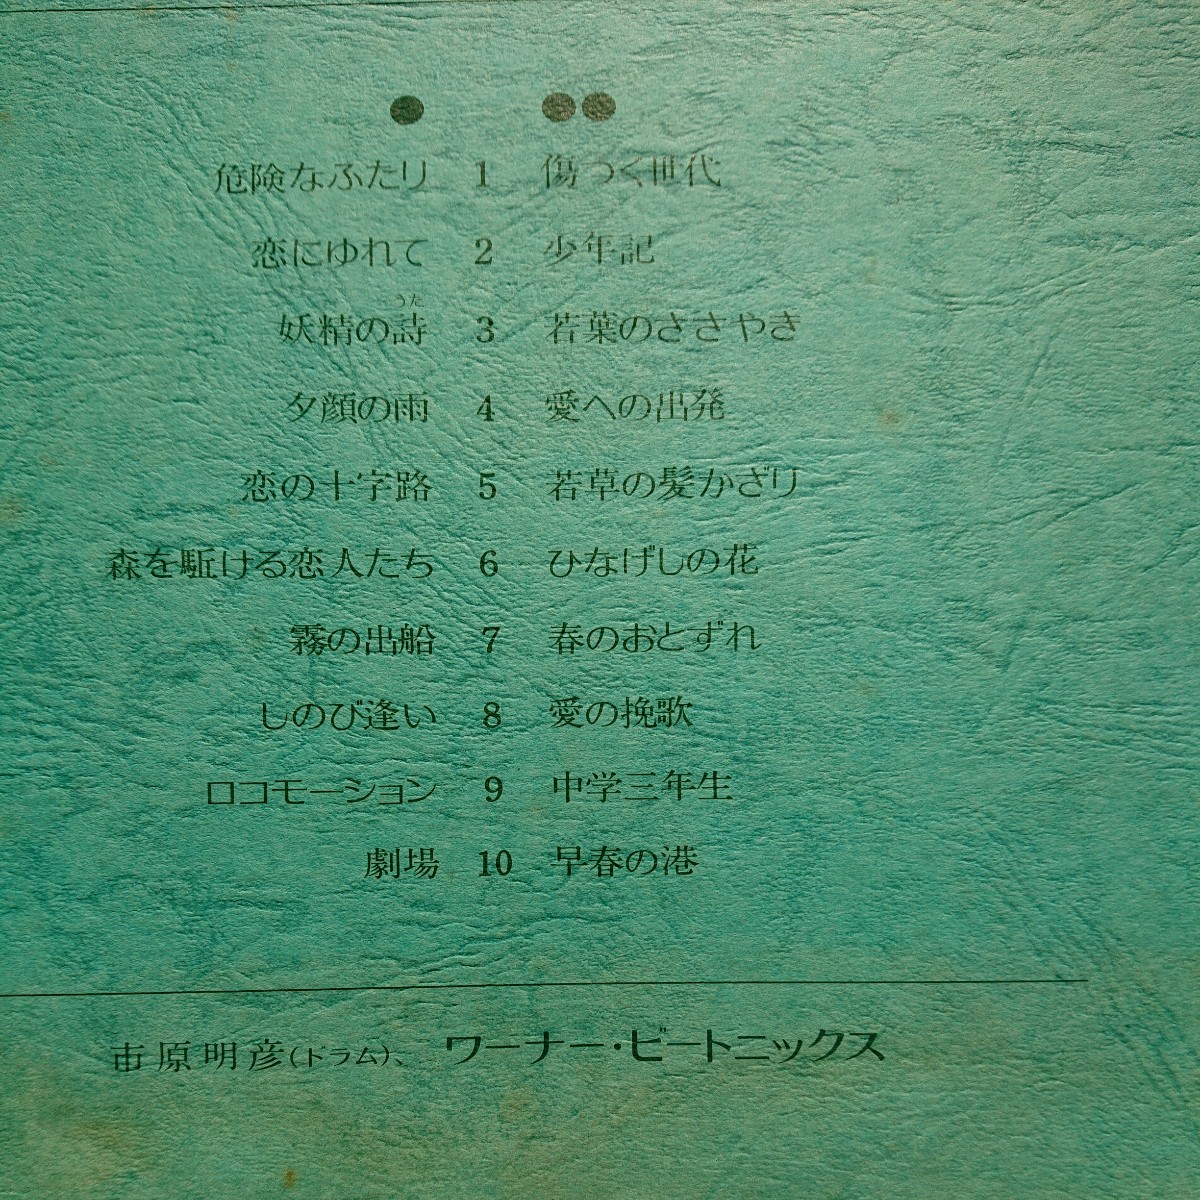 ● ●●
危険なふたり 1 傷つく世代
恋にゆれて 2 少年記
うた
妖精の詩 3 若葉のささやき
夕顔の雨 4 愛への出発
恋の十字路 5 若草の髪かざり
森を駈ける恋人たち 6 ひなげしの花
霧の出船 7 春のおとずれ
しのび逢い 8 愛の挽歌
ロコモーション 9 中学三年生
劇場 10 早春の港
市原明彦(ドラム)、ワーナー・ビートニックス